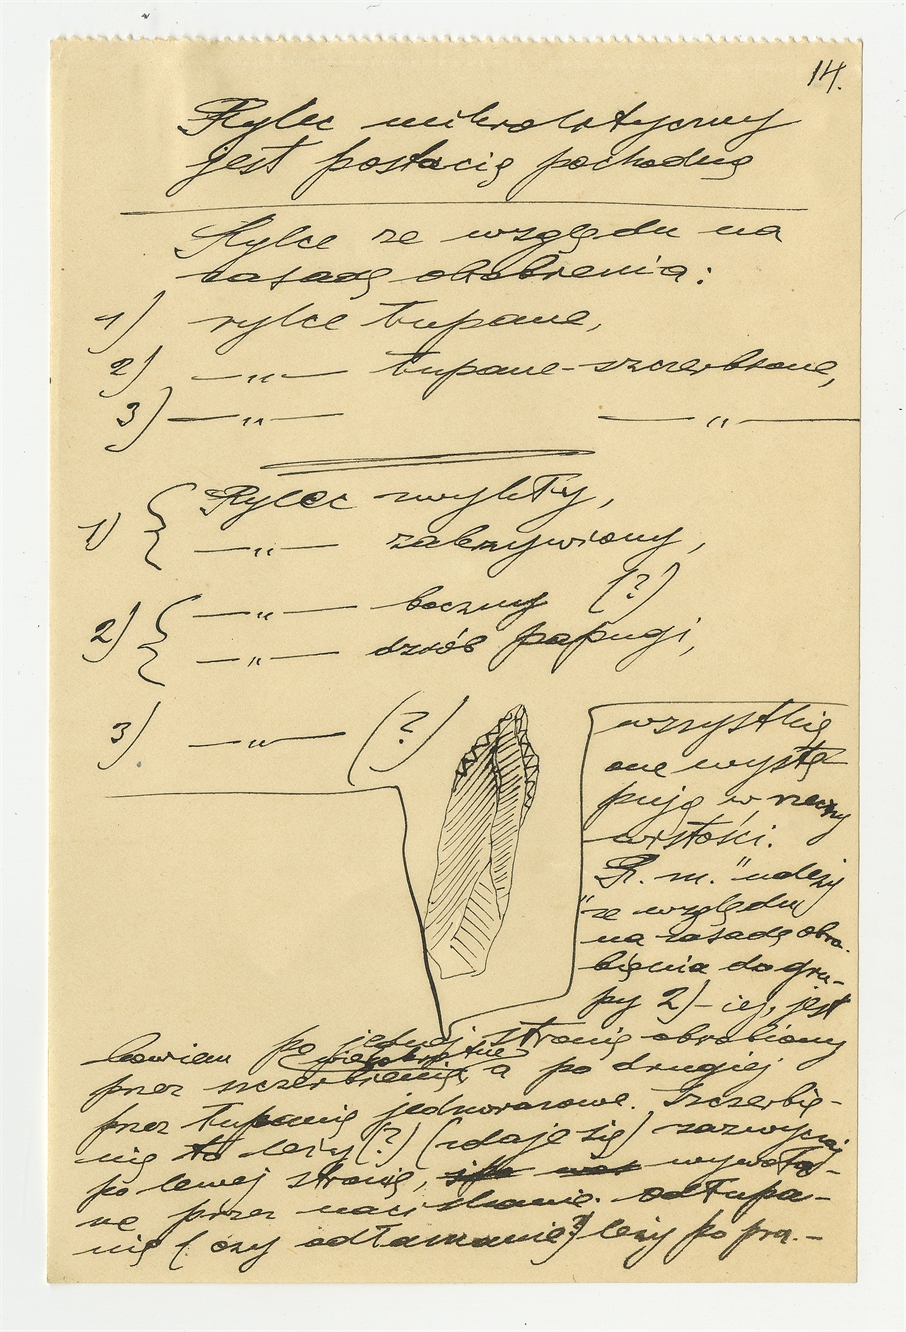 14.
Rylec mikrolityczny
jest postacią pochodną
Rylce ze względu na
zasadę obrobienia:
1) rylce łupane,
2) —„— łupane-szczerbione,
3) —„— —„—
1) { Rylec zwykły,
—„— zakrzywiony,
2) { —„— boczny (?)
—„— dziób papugi,
3) —„— (?)
wszystkie
one wystę
pują w rzeczy
wistości.
R. m. "należy
"ze względu
na zasadę obro-
bienia do gru-
py 2)-iej, jest
bowiem po jednej stronie obrobiony
przez szczerbienie wielokrotne a po drugiej
przez łupanie jednorazowe. Szczerbie-
nie to leży (?) (zdaje się) zazwyczaj
po lewej stronie, wywoła-
ne przez naciskanie. odłupa-
nie (czy odłamanie?) leży po pra.-